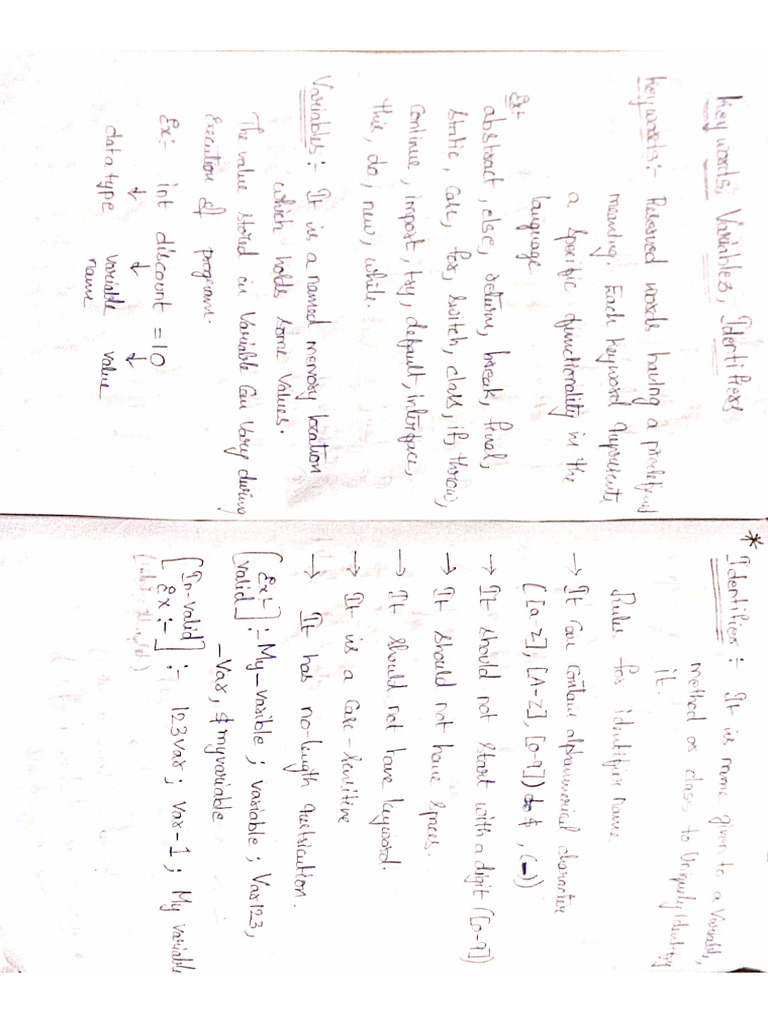 Keywords, Variables, Identifiers
Keywords:- Reserved words having a predefined
meaning. Each keyword represents
a specific functionality in the
language
Ex:-
abstract, else, return, break, final,
static, case, for, switch, class, if, throw,
continue, import, try, default, interface,
this, do, new, while.
Variables:- It is a named memory location
which holds some values.
The value stored in variable can vary during
execution of program.
Ex:- int discount = 10
↓ ↓ ↓
datatype variable value
name
* Identifier:- It is name given to a variable,
method or class to uniquely identify
it.
Rules for identifier name
→ It can contain alphanumerical character
([a-z], [A-Z], [0-9]) $, (_))
→ It should not start with a digit ([0-9])
→ It should not have spaces.
→ It should not have keyword.
→ It is a case-sensitive
→ It has no-length
[Ex:- valid] :- My_varible ; variable ; Var123,
_Var, $myvariable
[In-valid Ex:-] :- 123var ; var-1 ; My variable